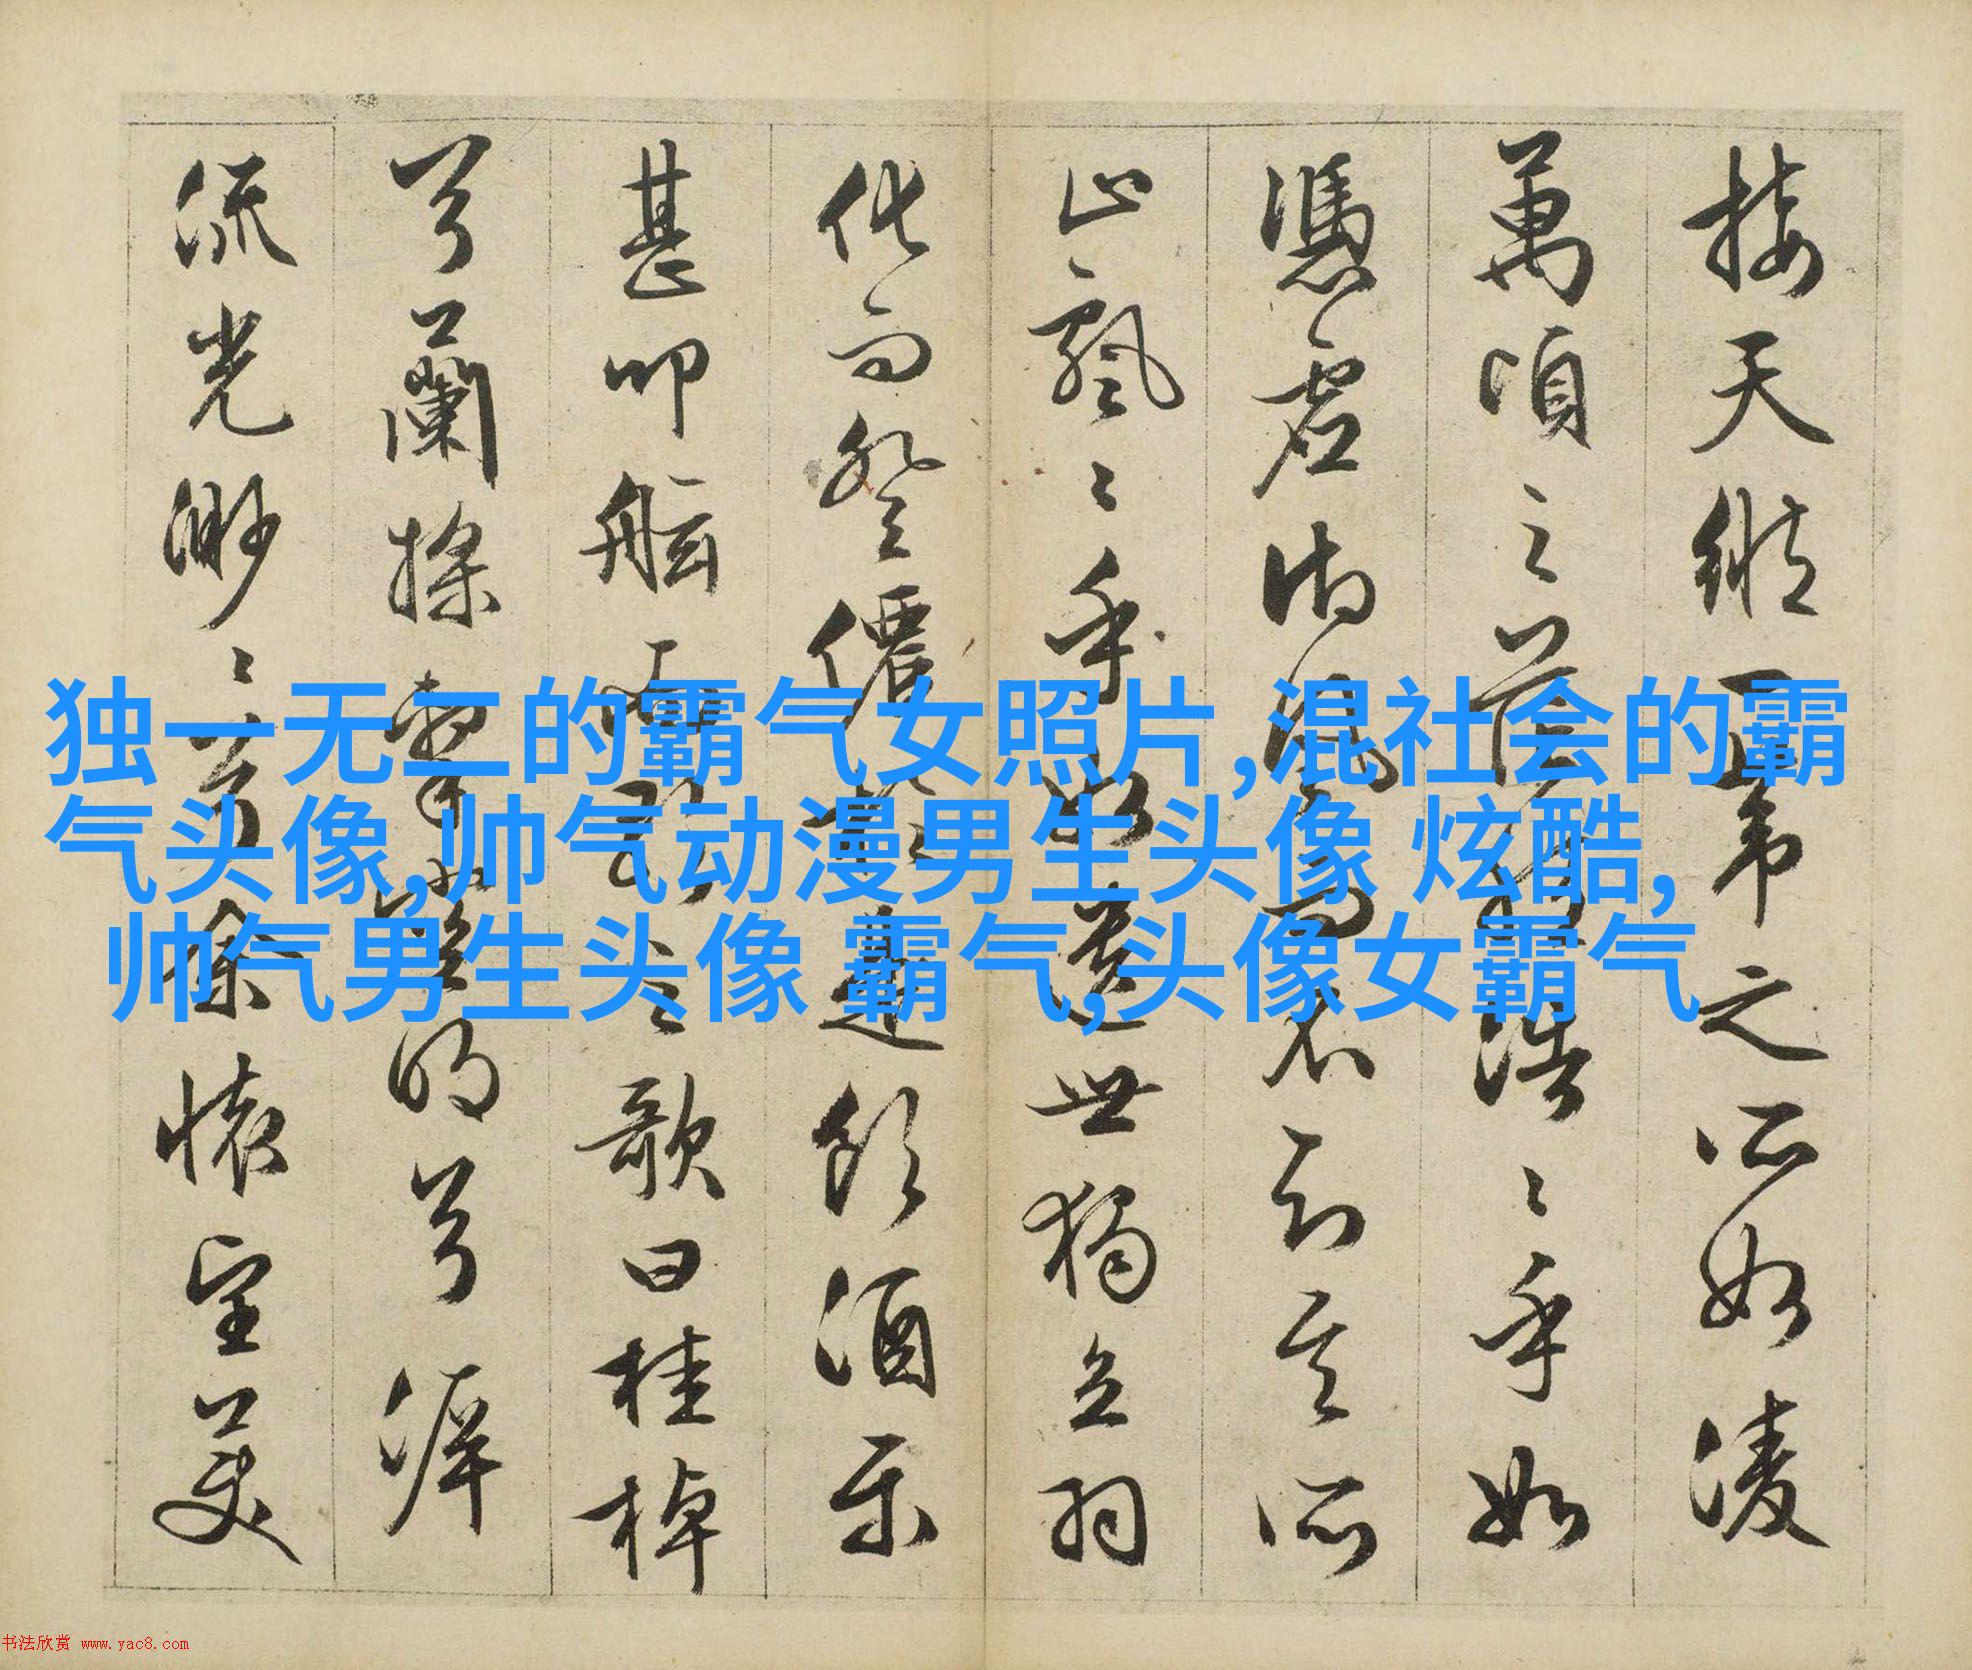 接天縱一葦之所如凌
萬頃之茫然浩〻乎如
憑虛御風而不知其所
止飄〻乎如遺世獨立羽
化而登僊於是飲酒樂
甚叩舷而歌之歌曰桂棹
兮蘭槳擊空明兮泝
流光渺〻兮余懷望美
独一无二的霸气女照片,混社会的霸
气头像,帅气动漫男生头像 炫酷,
帅气男生头像 霸气,头像女霸气
书法欣赏 www.yac8.com